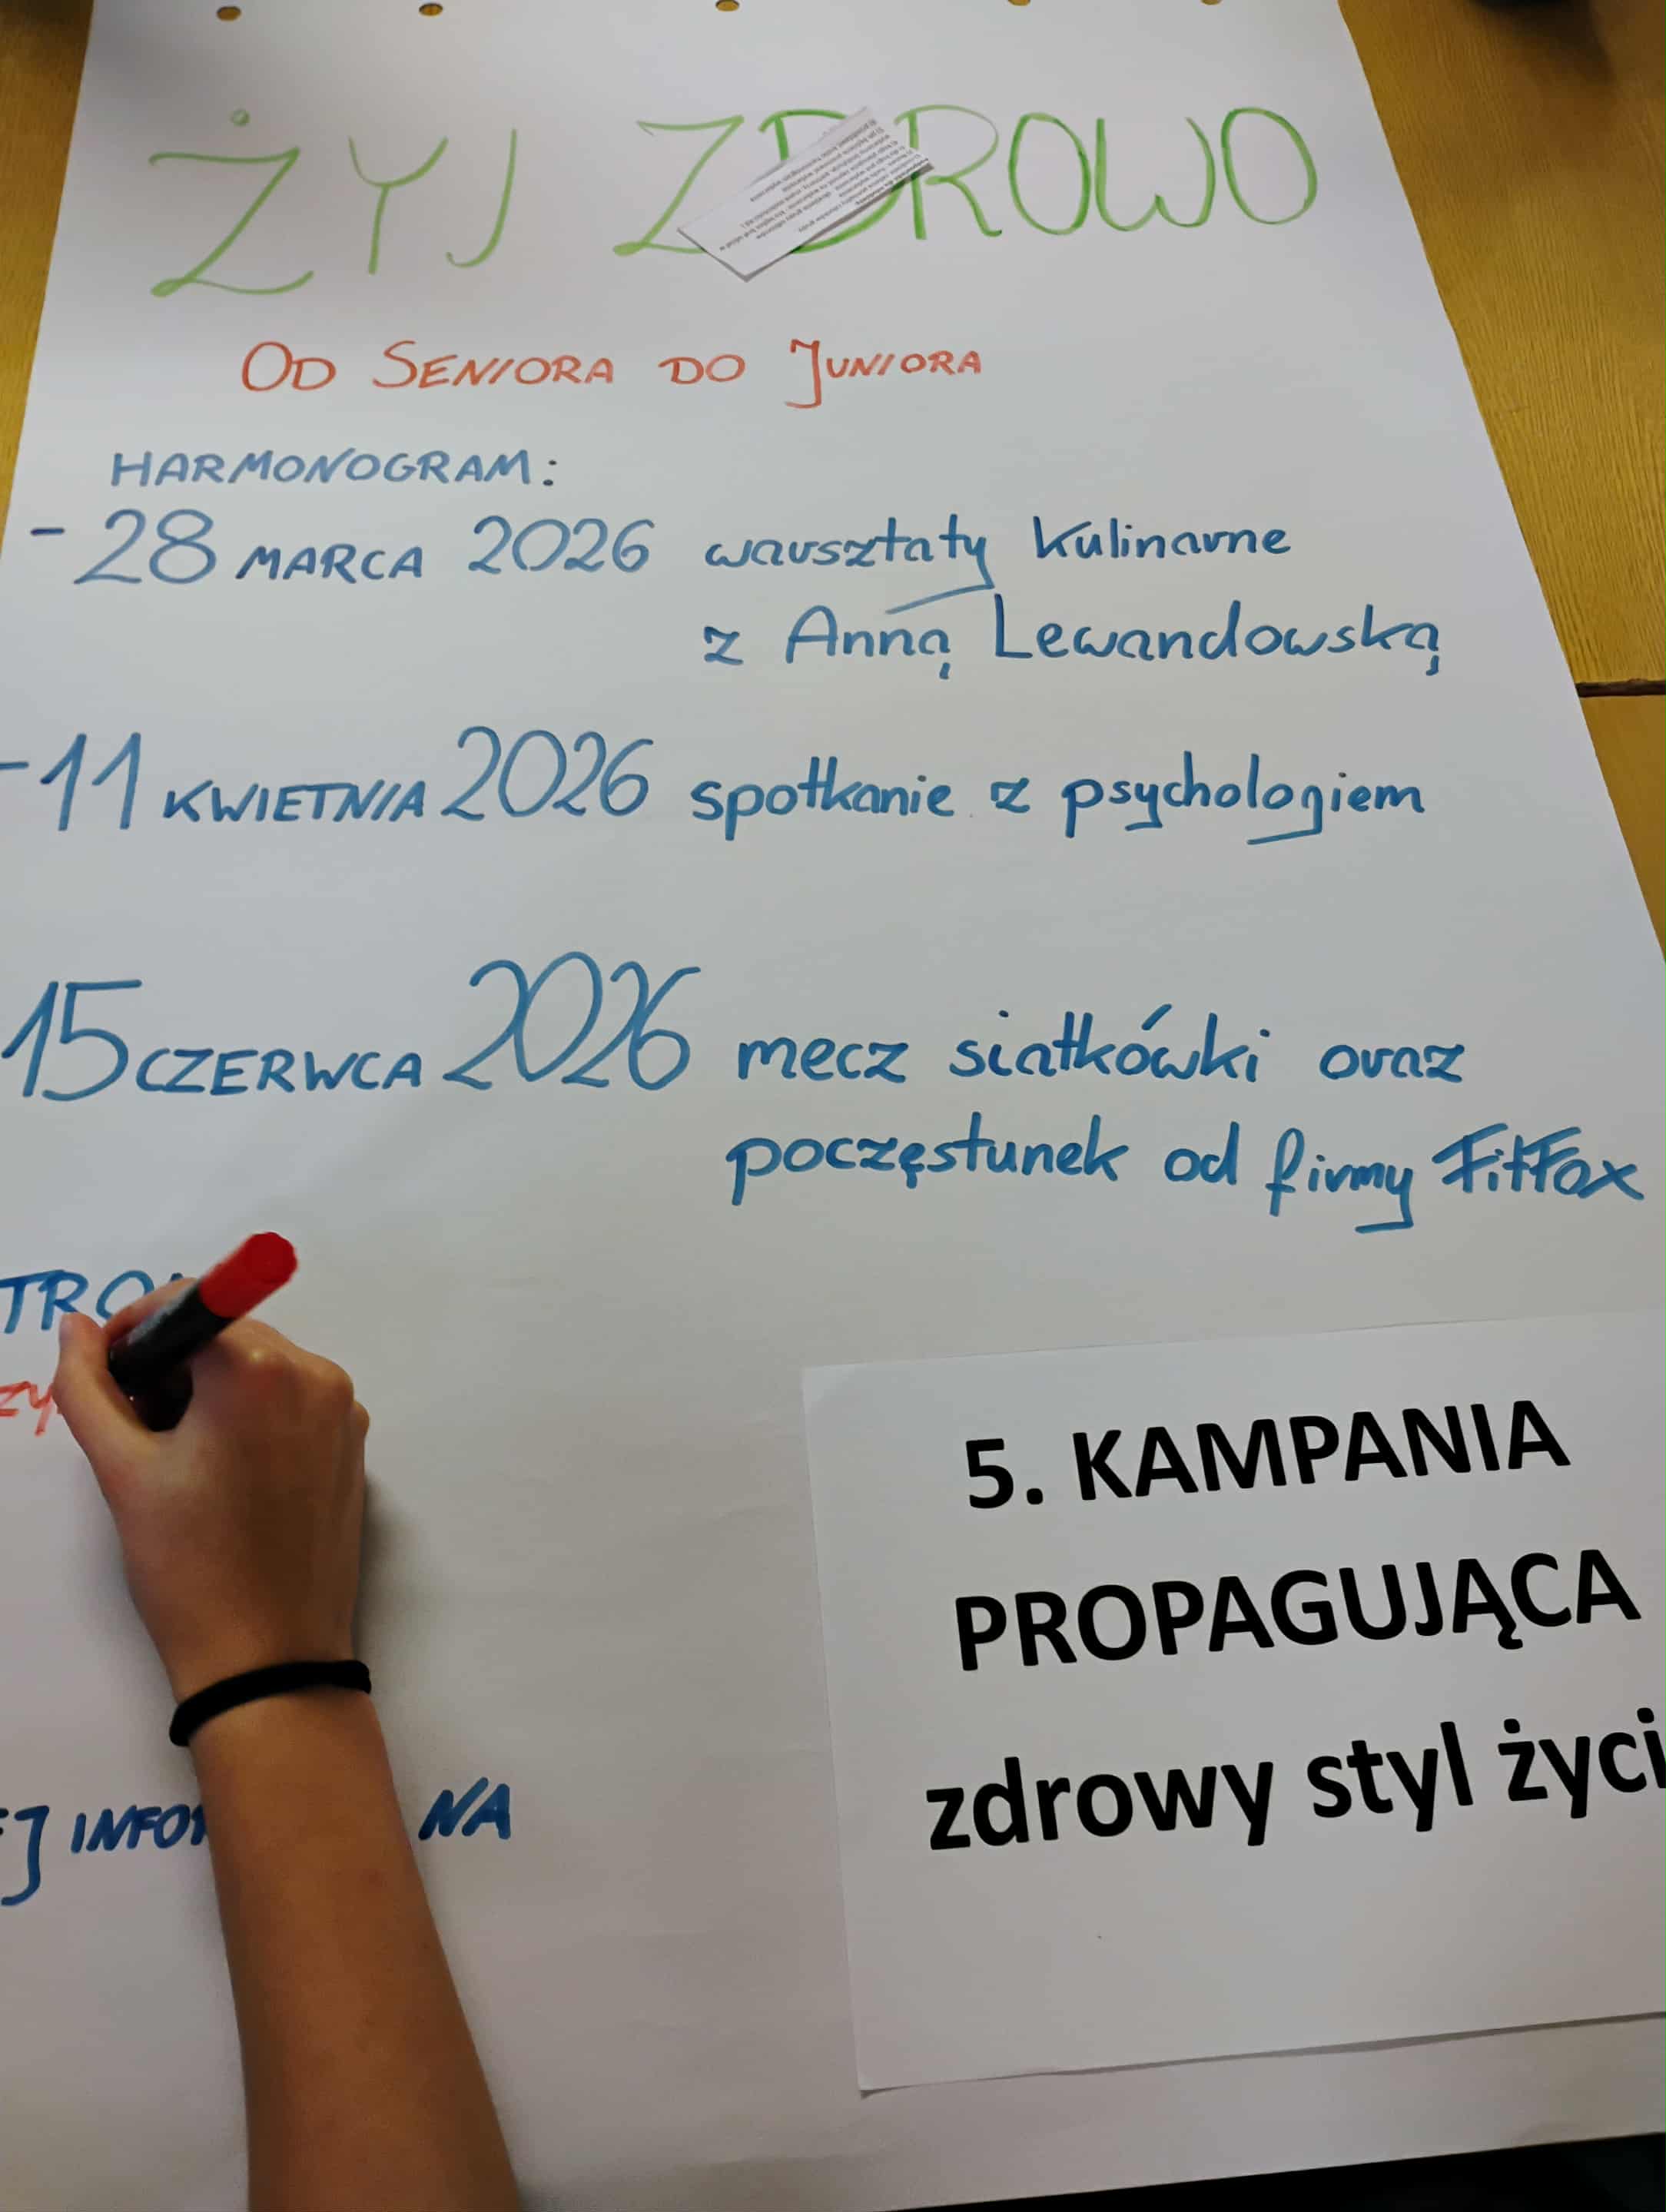 ŻYJ ZDROWO
OD SENIORA DO JUNIORA
HARMONOGRAM:
- 28 MARCA 2026 warsztaty kulinarne
z Anną Lewandowską
- 11 KWIETNIA 2026 spotkanie z psychologiem
15 CZERWCA 2026 mecz siatkówki oraz
poczęstunek od firmy FitFox
NA
5. KAMPANIA
PROPAGUJĄCA
zdrowy styl życi